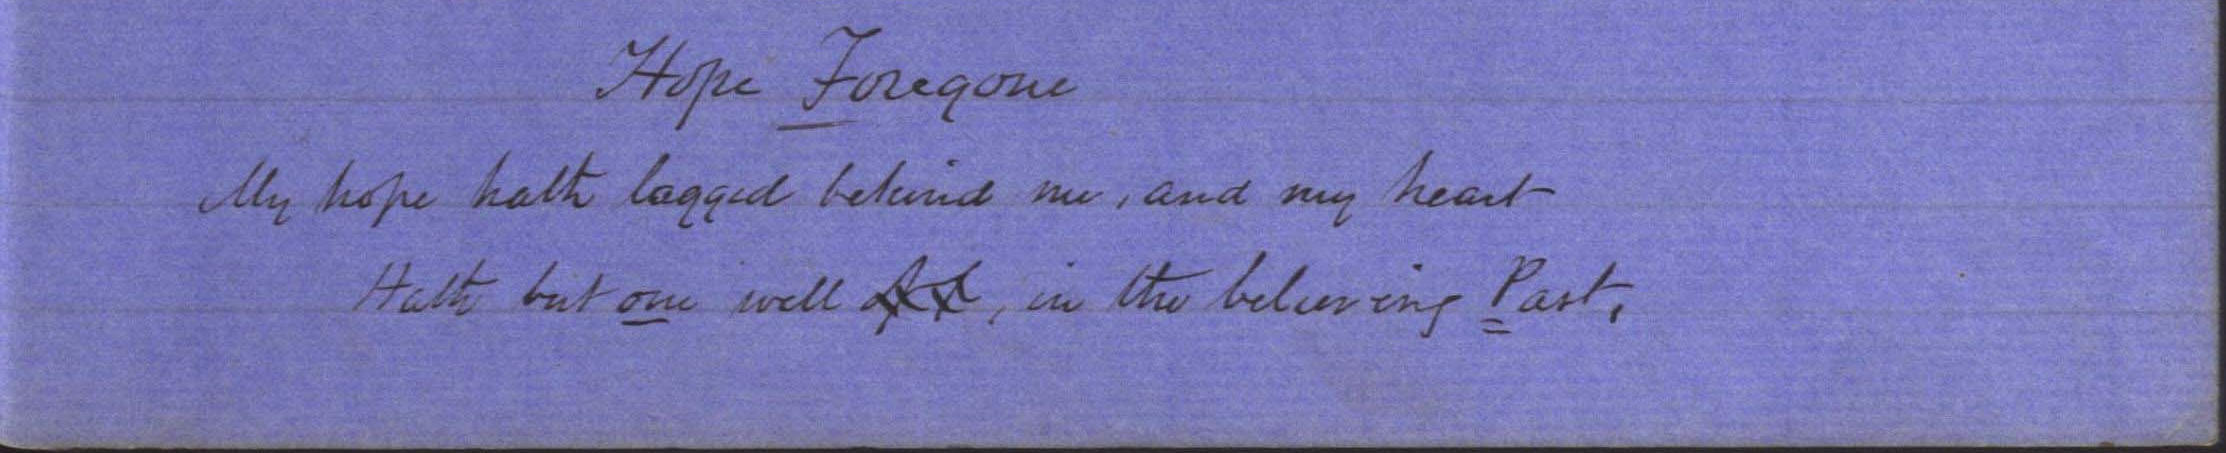 Hope Foregone
My hope hath lagged behind me, and my heart
Hath but one well , in the believing Past,